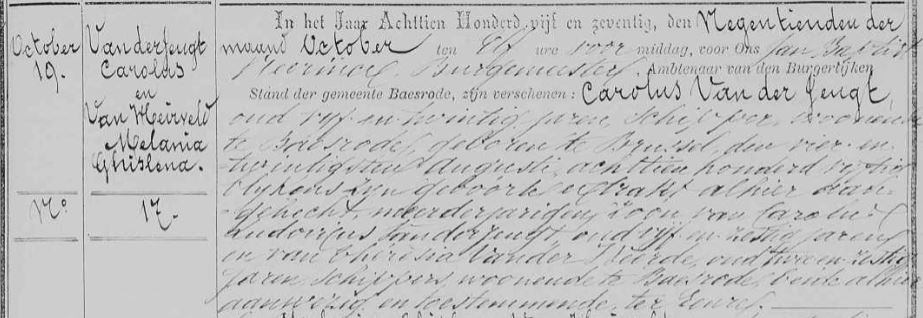 October
19.
Van der Jeugt
Carolus
en
Van Heirvelde
Melania
Ghislena.
N.º
17.
In het Jaar Achttien Honderd vijf en zeventig, den Negentienden der
maand October ten Elf ure voor middag, voor Ons Jan Baptist
Burgemeester, Ambtenaar van den Burgerlijken
Stand der gemeente Baesrode, zijn verschenen: Carolus Van der Jeugt,
oud vyf en twintig jaren, Schipper, woonende
te Baesrode, geboren te Brussel, den vier en
twintigsten Augusti, achttien honderd vyftig
blykens zyn geboorte extrakt alhier aan-
gehecht, meerderjarigen Zoon van
Vanderjeugt, oud vyf en zestig jaren
en van Theresia Vander oud twee en zestig
jaren, Schippers, woonende te Baesrode, beide alhier
aanwezig en toestemmende, ter Eenre,